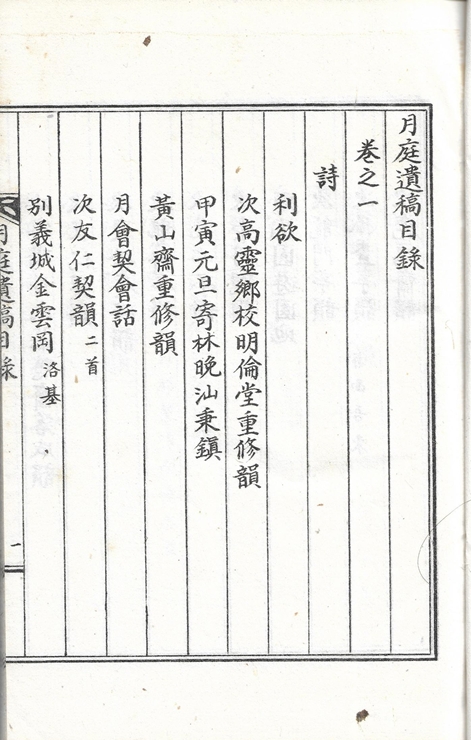 月庭遺稿目錄
卷之一
詩
利欲
次高靈鄉校明倫堂重修韻
甲寅元旦寄林晚汕秉鎭
黃山齋重修韻
月會契會話
次友仁契韻二首
別義城金雲岡洛基
月庭遺稿目錄
一